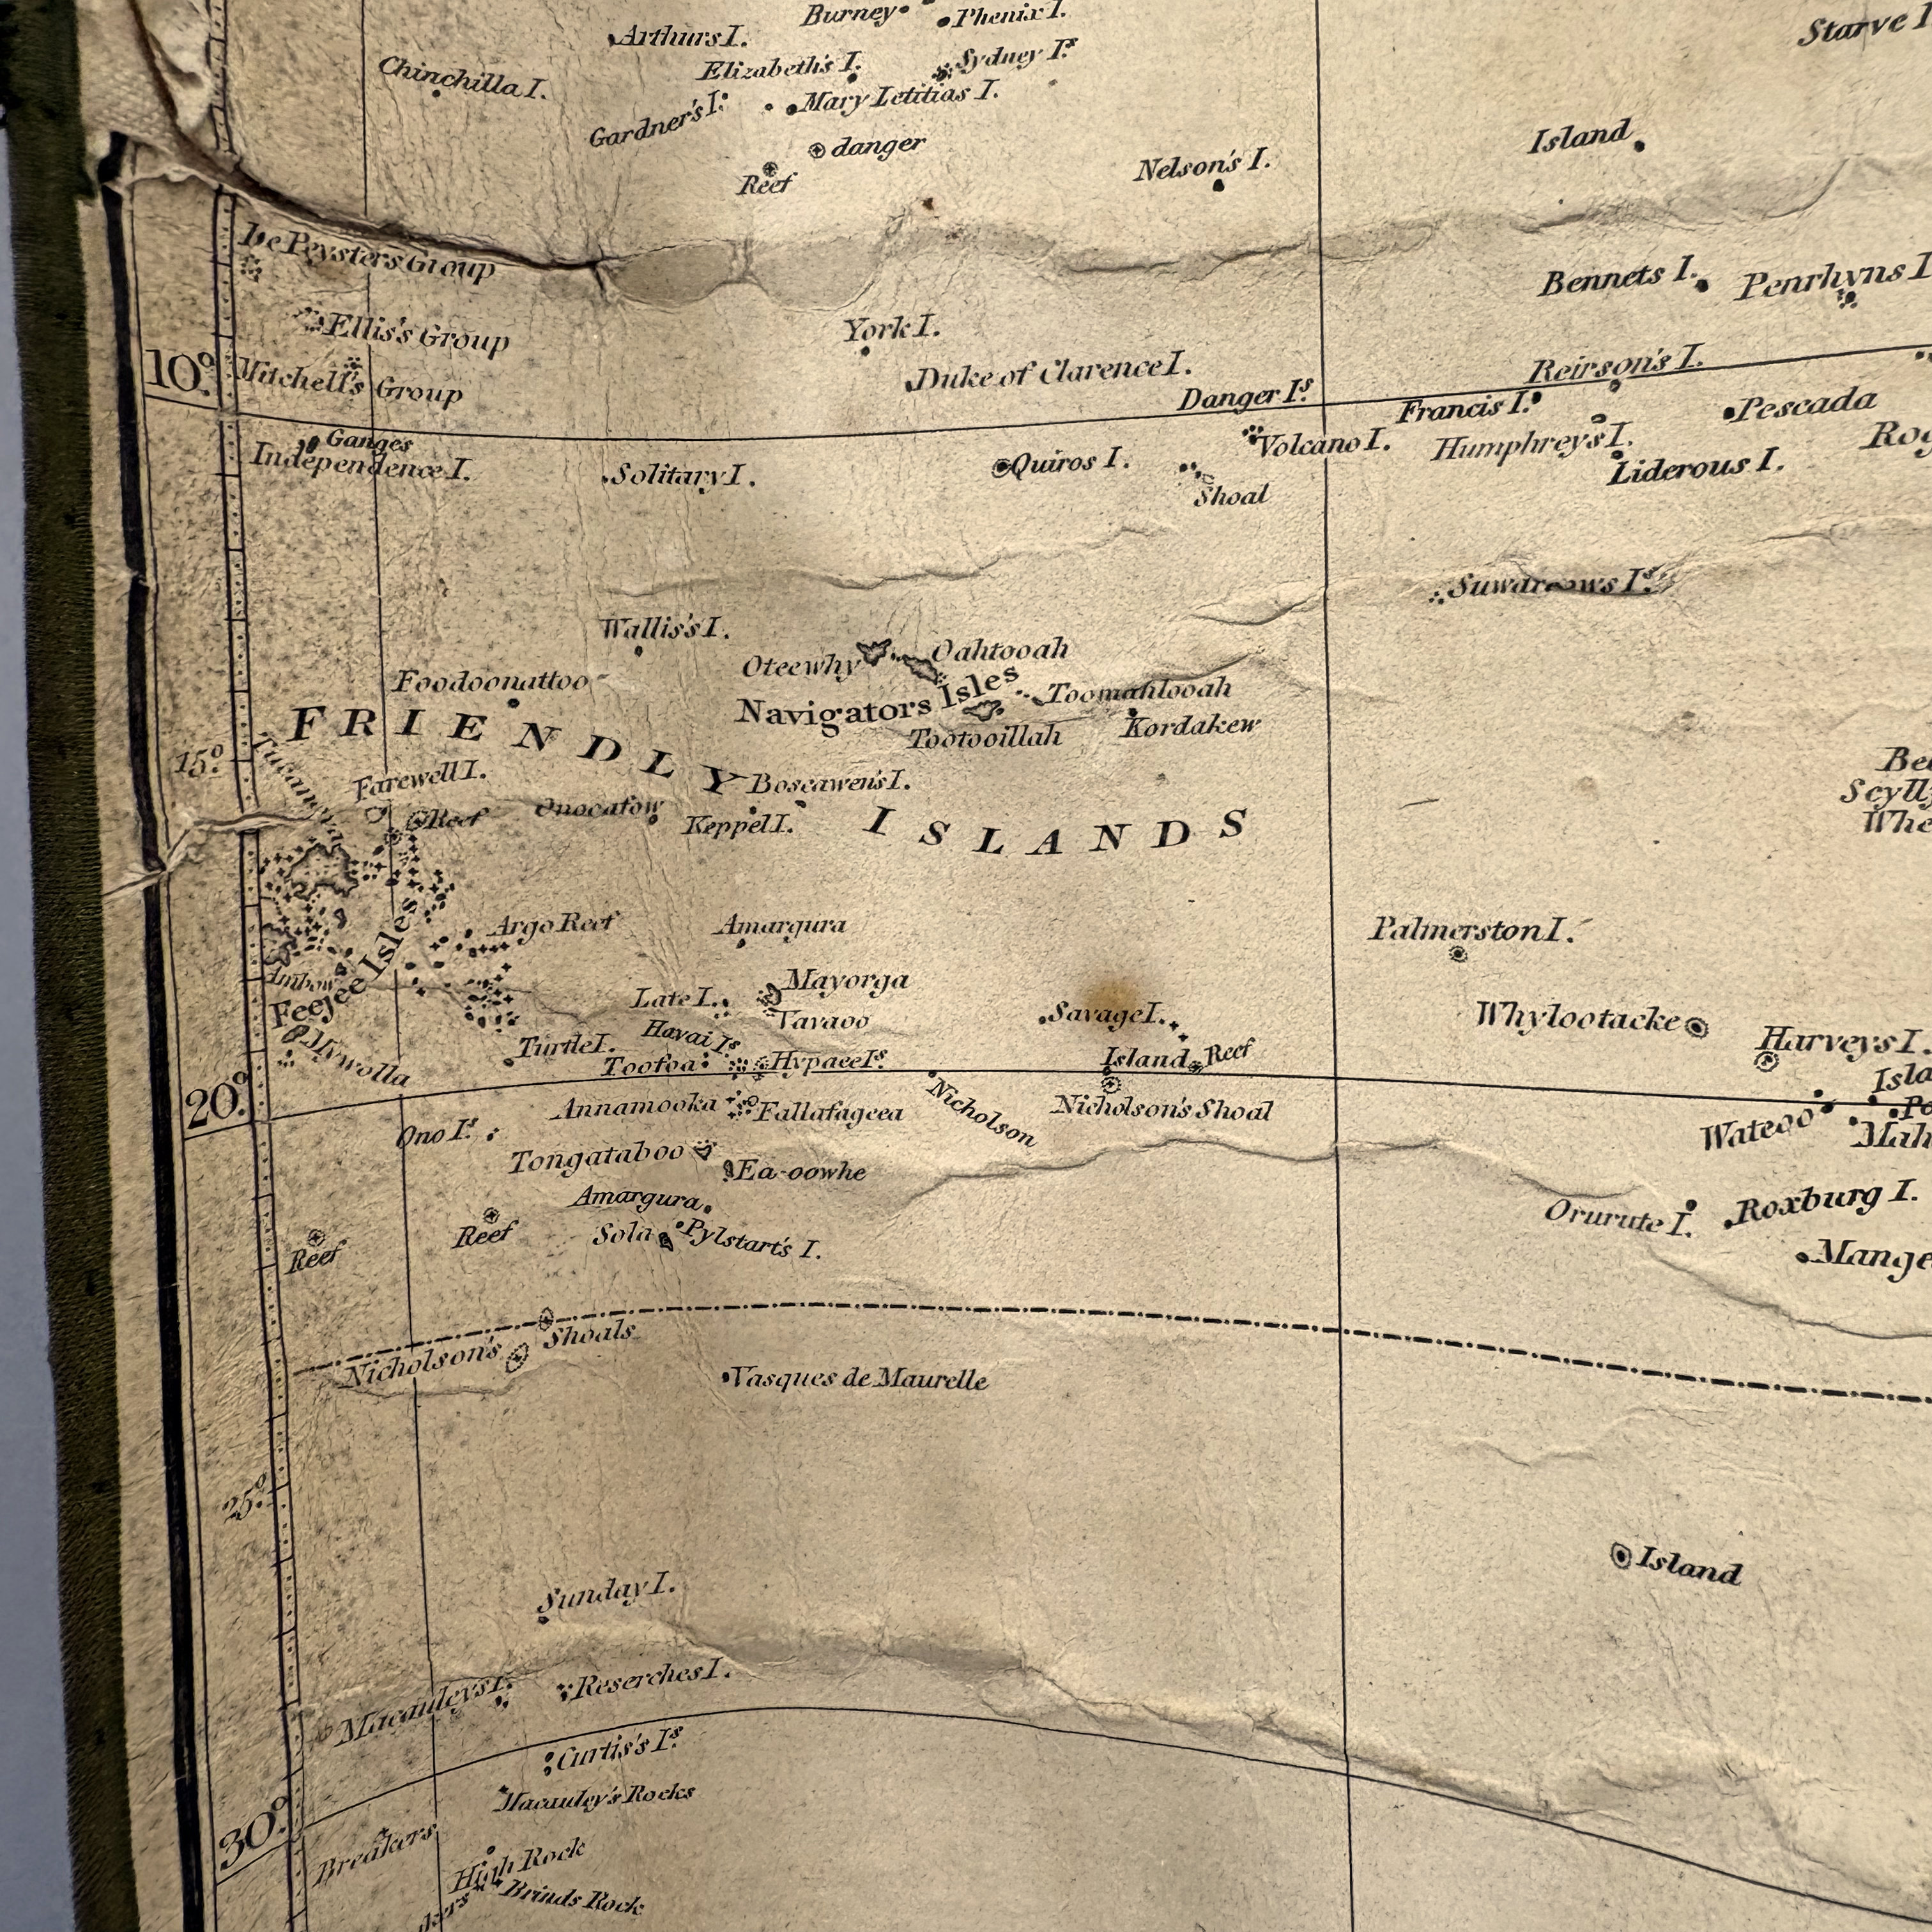 Burney
Phenix I.
Starve I
Arthurs I.
Elizabeth's I.
Sydney Is
Chinchilla I.
Mary Letitias I.
Gardner's I.
danger
Island
Reef
Nelson's I.
De Peysters Group
Bennets I.
Penrhyns I
Ellis's Group
York I.
10°
Mitchell's Group
Duke of Clarence I.
Reirson's I.
Danger Is.
Francis I.
Pescada
Ganges
Independence I.
Solitary I.
Quiros I.
Volcano I.
Humphreys I.
Liderous I.
Shoal
Suwarrows Is.
Wallis's I.
Oteewhy
Oahtooah
Foodoonattoo
Navigators Isles
Toomahlooah
Kordakew
Tootooillah
FRIENDLY
15°
Farewell I.
Boscawen's I.
Reef
Onocafow
Keppel I.
ISLANDS
Argo Reef
Amargura
Palmerston I.
Feejee Isles
Late I.
Mayorga
Vavaoo
Savage I.
Whylootacke
Harveys I.
Turtle I.
Havai Is
Tootoa
Hypaee Is.
Island
Reef
20°
Annamooka
Fallafageea
Nicholson
Nicholson's Shoal
Wateoo
Ono Is.
Tongataboo
Ea-oowhe
Amargura
Sola
Pylstart's I.
Orurute I.
Roxburg I.
Mange
Reef
Reef
Nicholson's
Shoals
Vasques de Maurelle
25°
Island
Sunday I.
Macauleys I.
Reserches I.
Curtis's Is.
Macauley's Rocks
30°
Breakers
High Rock
Brinds Rock